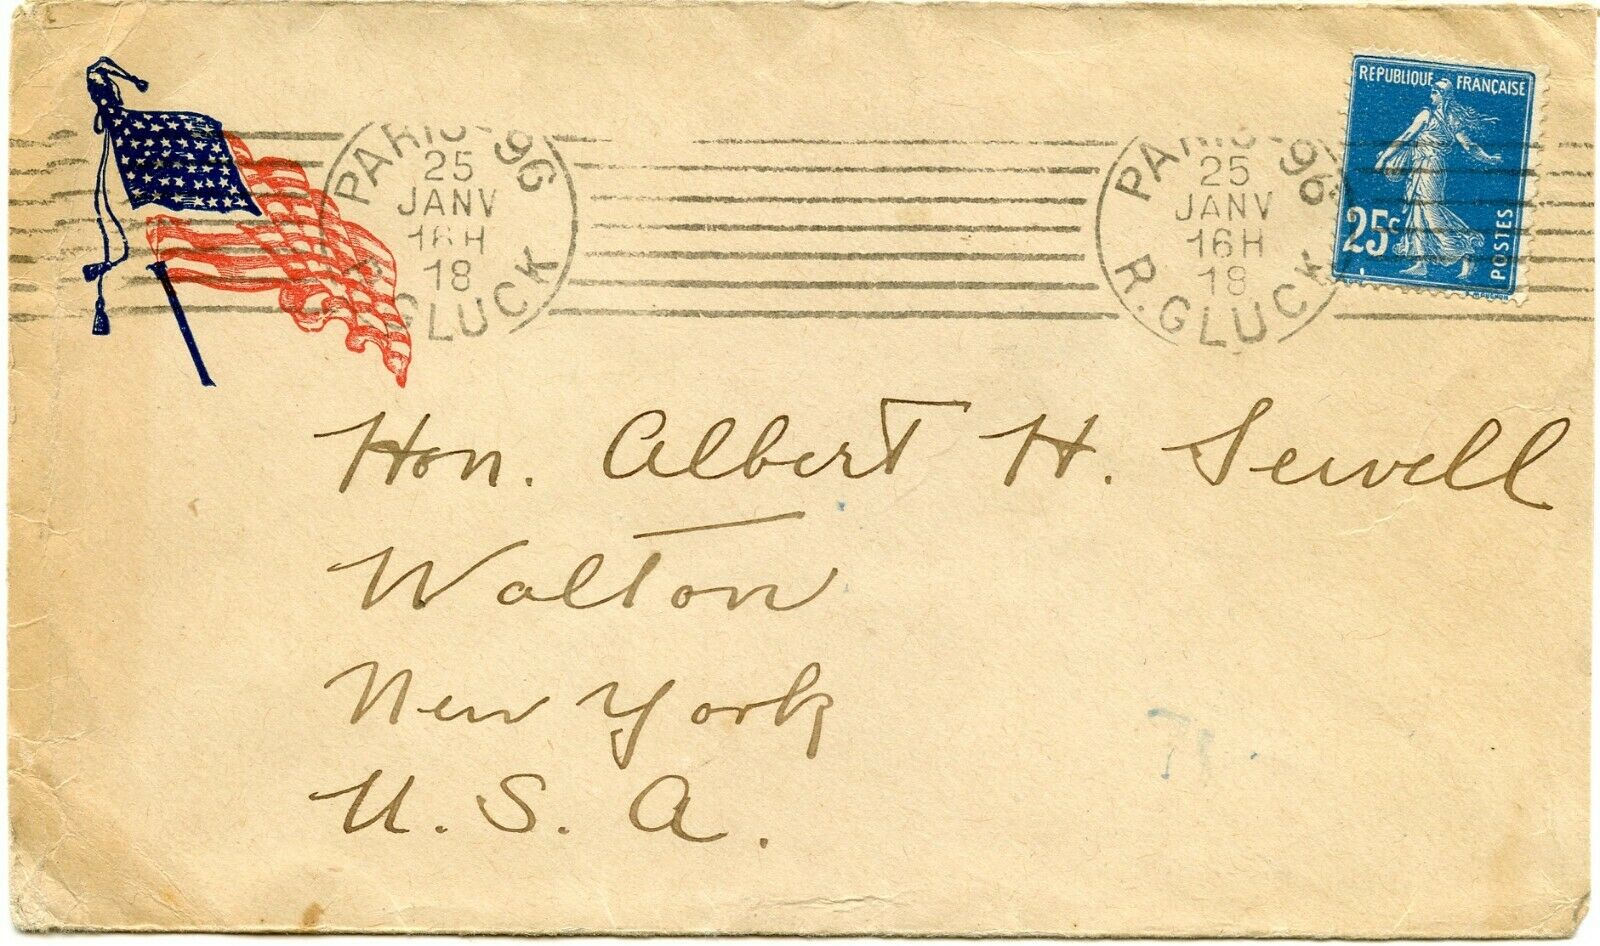 PARIS-96
25
JANV
16H
18
R. GLUCK
PARIS-96
25
JANV
16H
18
R. GLUCK
REPUBLIQUE FRANÇAISE
25c
POSTES
Hon. Albert H. Sewell
Walton
New York
U. S. A.